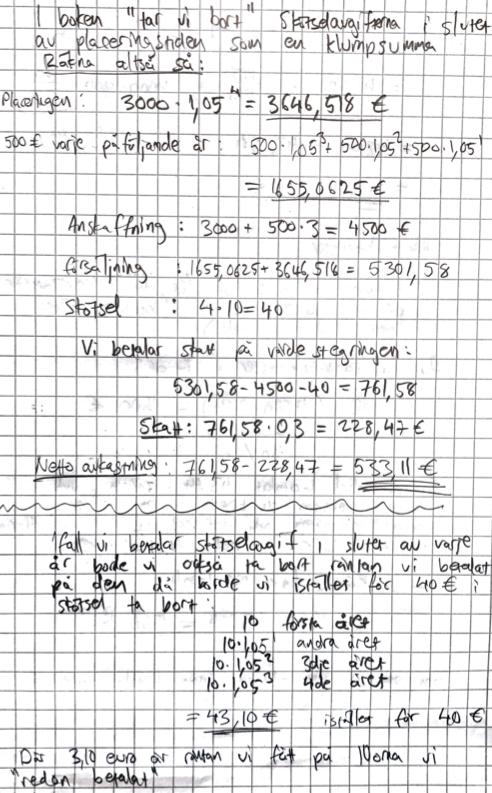 I boken "tar vi bort" Skötselavgifterna i slutet
av placeringstiden som en klumpsumma
Räkna alltså så:
Placeringen: 3000 · 1,05⁴ = 3646,518 €
500€ varje påföljande år: 500·1,05³+500·1,05²+500·1,05¹
= 1655,0625 €
Anskaffning : 3000 + 500·3 = 4500 €
försäljning : 1655,0625+3646,518 = 5301,58
Skötsel : 4·10=40
Vi betalar skatt på värdestegringen:
5301,58-4500-40 = 761,58
Skatt: 761,58·0,3 = 228,47€
Netto avkastning: 761,58-228,47 = 533,11 €
Ifall vi betalar skötselavgift i slutet av varje
år borde vi också ta bort räntan vi betalat
på den då borde vi istället för 40€ i
skötsel ta bort:
10 första året
10·1,05¹ andra året
10·1,05² 3dje året
10·1,05³ 4de året
= 43,10€ istället för 40€
Där 3,10 euro är räntan vi fått på 10orna vi
"redan betalat"